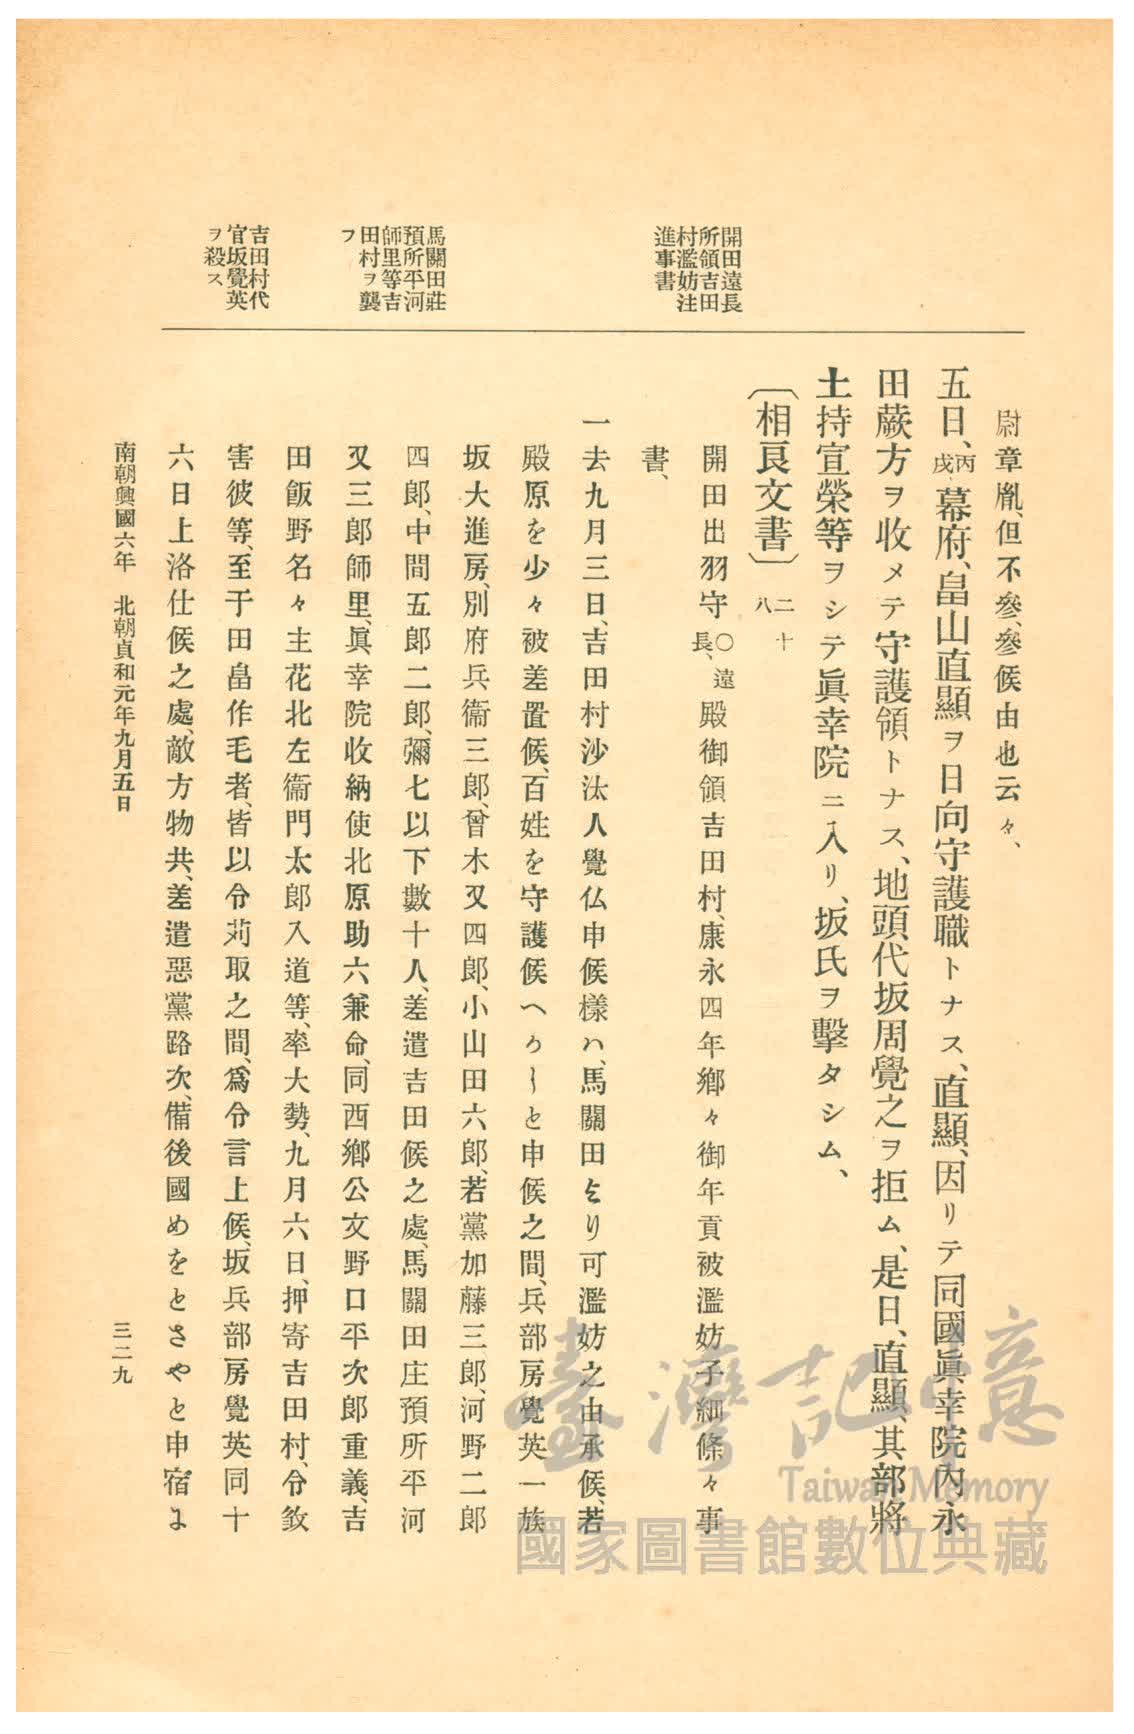 開田遠長
所領吉田
村濫妨注
進事書
馬關田莊
預所平河
師里等吉
田村ヲ襲
フ
吉田村代
官坂覺英
ヲ殺ス
尉章胤、但不參、參候由也云々、
五日、丙戌幕府、畠山直顯ヲ日向守護職トナス、直顯、因リテ同國眞幸院內永
田蕨方ヲ收メテ守護領トナス、地頭代坂周覺之ヲ拒ム、是日、直顯、其部將
土持宣榮等ヲシテ眞幸院ニ入リ、坂氏ヲ擊タシム、
〔相良文書〕二十八
開田出羽守○遠長、殿御領吉田村、康永四年鄉々御年貢被濫妨子細條々事
書、
一去九月三日、吉田村沙汰人覺仏申候樣ハ、馬關田より可濫妨之由承候、若
殿原を少々被差置候、百姓を守護候へかしと申候之間、兵部房覺英一族
坂大進房、別府兵衞三郎、曾木又四郎、小山田六郎、若黨加藤三郎、河野二郎
四郎、中間五郎二郎、彌七以下數十人、差遣吉田候之處、馬關田庄預所平河
又三郎師里、眞幸院收納使北原助六兼命、同西鄉公文野口平次郎重義、吉
田飯野名々主花北左衞門太郎入道等、率大勢、九月六日、押寄吉田村、令欻
害彼等、至于田畠作毛者、皆以令苅取之間、爲令言上候、坂兵部房覺英同十
六日上洛仕候之處、敵方物共、差遣惡黨路次、備後國めをとさやと申宿よ
南朝興國六年 北朝貞和元年九月五日
三二九
臺灣記憶
Taiwan Memory
國家圖書館數位典藏